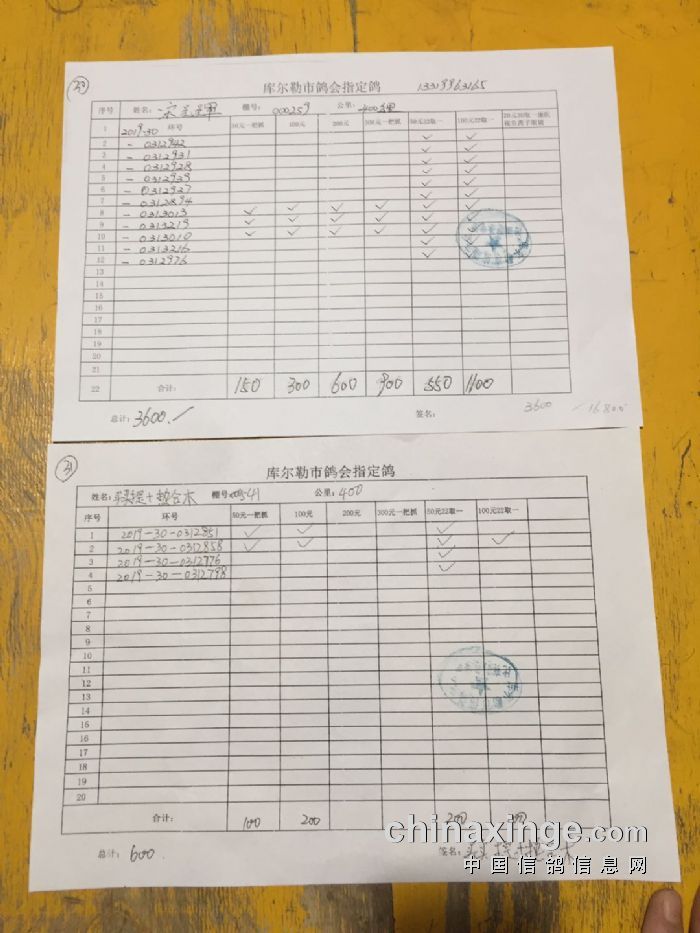 30 库尔勒市鸽会指定鸽 13319963165
序号 姓名: 宋 棚号: 000259 公里: 400公里
1 2019-30 环号 50元一把抓 100元 200元 300元一把抓 50元22取一 100元22取一
2 - 0312942 ✓ ✓
3 - 0312931 ✓ ✓
4 - 0312928 ✓ ✓
5 - 0312939 ✓ ✓
6 - 0312927 ✓ ✓
7 - 0312894 ✓ ✓
8 - 0313013 ✓ ✓ ✓ ✓ ✓ ✓
9 - 0313219 ✓ ✓ ✓ ✓ ✓ ✓
10 - 0313010 ✓ ✓ ✓ ✓ ✓ ✓
11 - 0313216 ✓ ✓
12 - 0312976 ✓
13
14
15
16
17
18
19
20
21
22 合计: 150 300 600 900 550 1100
总计: 3600./ 签名: 3600 / 16800
31 库尔勒市鸽会指定鸽
姓名: 棚号: 00541 公里: 400
序号 环号 50元一把抓 100元 200元 300元一把抓 50元22取一 100元22取一
1 2019-30-0312851 ✓ ✓ ✓
2 2019-30-0312858 ✓ ✓ ✓ ✓
3 2019-30-0312776 ✓
4 2019-30-0312798 ✓
5
6
7
8
9
10
11
12
13
14
15
16
17
18
19
20
合计: 100 200 200
总计: 600 签名:
chinaxinge.com
中国信鸽信息网